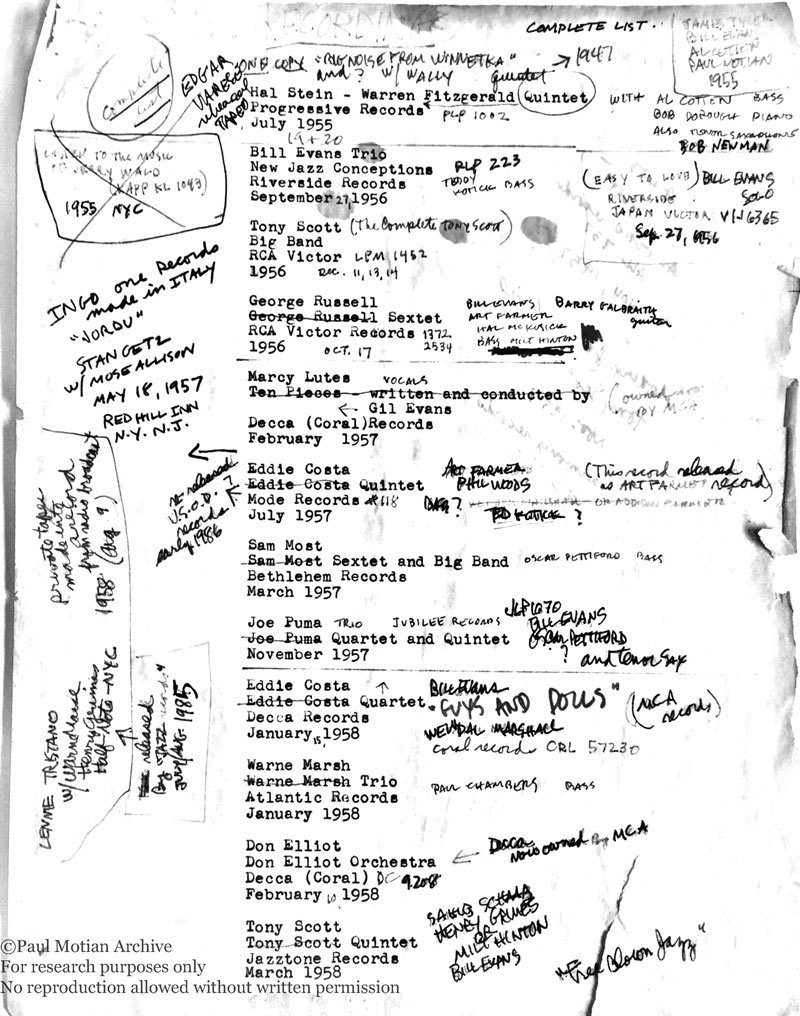 RECORDINGS
COMPLETE LIST..
JAMIE TYLER
BILL EVANS
AL COTTON
PAUL MOTIAN
1955
Complete
List
EDGAR
VARESE
released
TAPED
ONE COPY "BIG NOISE FROM WINNETKA"
and ? w/ WALLY quintet
→ 1947
Hal Stein - Warren Fitzgerald Quintet
Progressive Records
PLP 1002
July 1955
19 + 20
WITH AL COTTEN BASS
BOB DOROUGH PIANO
ALSO TENOR SAXOPHONE
BOB NEWMAN
LISTEN TO THE MUSIC
OF JERRY WALD
(KAPP KL 1043)
1955 NYC
Bill Evans Trio
New Jazz Conceptions RLP 223
Riverside Records
TEDDY
KOTICK BASS
September 27, 1956
(EASY TO LOVE) BILL EVANS
SOLO
RIVERSIDE
JAPAN VICTOR VIJ 6365
Sep. 27, 1956
Tony Scott (The Complete Tony Scott)
Big Band
RCA Victor LPM 1452
1956 DEC. 11, 13, 14
INGO one records
made in ITALY
"JORDU"
STAN GETZ
w/ MOSE ALLISON
MAY 18, 1957
RED HILL INN
N.Y. N.J.
George Russell
George Russell Sextet
RCA Victor Records 1372
2534
1956 OCT. 17
BILL EVANS BARRY GALBRAITH
guitar
ART FARMER
HAL McKUSICK
BASS MILT HINTON
Marcy Lutes VOCALS
Ten Pieces - written and conducted by
← Gil Evans
Decca (Coral)Records
February 1957
(owned now
BY MCA
Eddie Costa
Eddie Costa Quintet
Mode Records #118
July 1957
ART FARMER
PHIL WOODS
BASS?
OR ADDISON FARMER
TED KOTICK ?
(This record released
as ART FARMER record)
re-released
V.S.O.P. ?
records
early 1986
Private tapes
made into
a record
from radio broadcast
1958 (Aug 9)
LENNIE TRISTANO
w/ Warne Marsh
Henry Grimes
Half Note - NYC
Sam Most
Sam Most Sextet and Big Band OSCAR PETTIFORD BASS
Bethlehem Records
March 1957
Joe Puma TRIO JUBILEE RECORDS JLP 1070
Joe Puma Quartet and Quintet
November 1957
BILL EVANS
OSCAR PETTIFORD
? and tenor sax
released
By "JAZZ records"
JULY/AUG. 1985
Eddie Costa ↑
Eddie Costa Quartet
Decca Records
January 15, 1958
BILL EVANS
"GUYS AND DOLLS"
(MCA
records)
WENDAL MARSHALL
coral records CRL 57230
Warne Marsh
Warne Marsh Trio
Atlantic Records
January 1958
PAUL CHAMBERS BASS
Don Elliot
Don Elliot Orchestra
Decca (Coral) DC 9208
February 10 1958
← Decca
now owned By MCA
Tony Scott
Tony Scott Quintet
Jazztone Records
March 1958
SAHIB SCHAAB
HENRY GRIMES
OR
MILT HINTON
BILL EVANS
"Free Blown Jazz"
©Paul Motian Archive
For research purposes only
No reproduction allowed without written permission